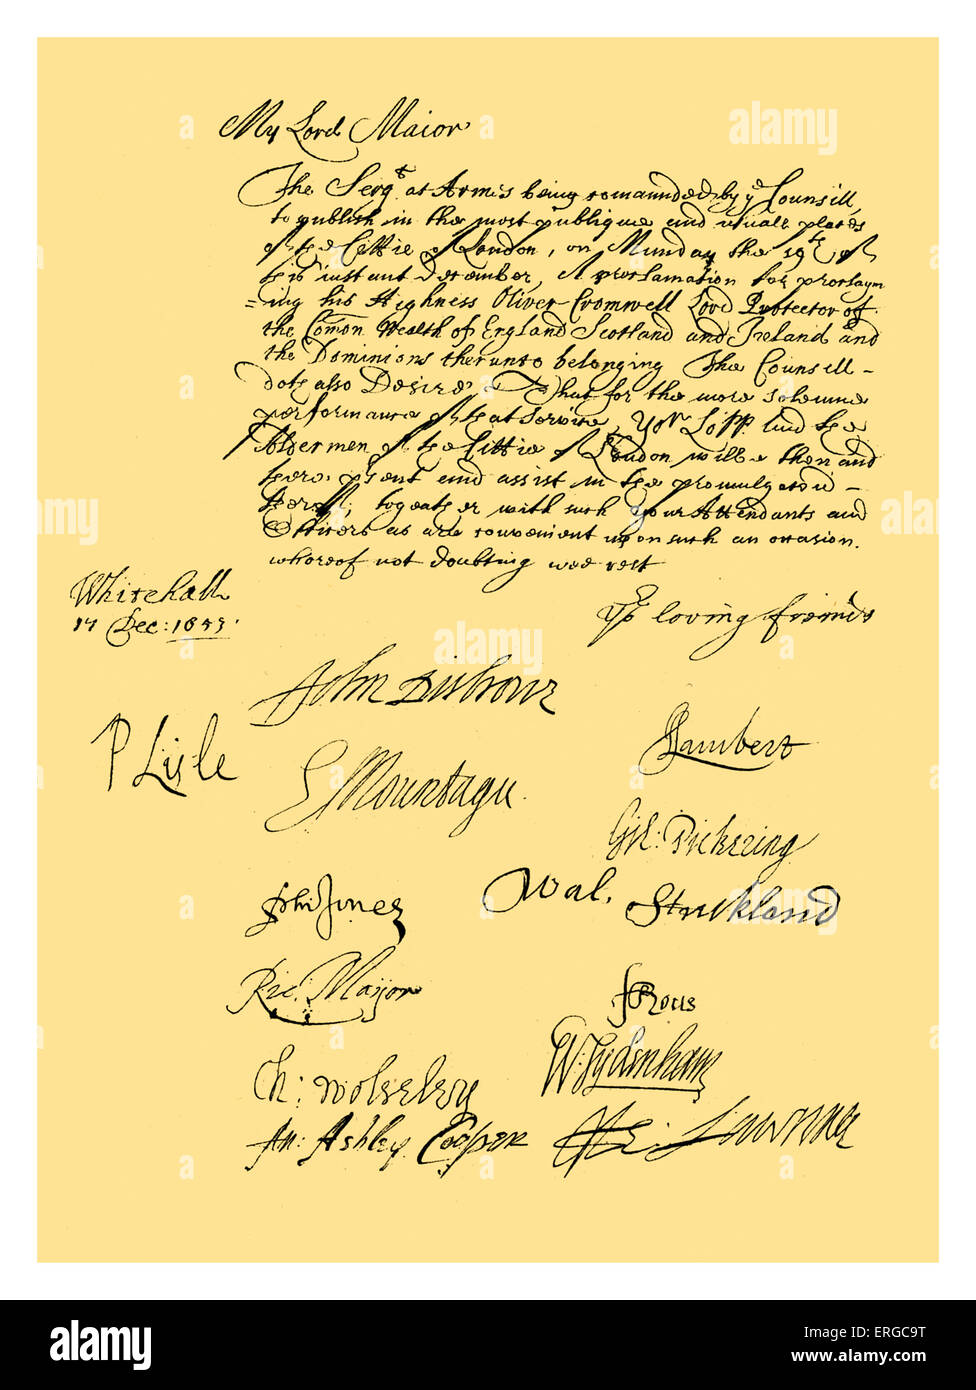 My Lord Maior
The Sergt at Armes being comaunded by ye Counsill,
to publish in the most publique and usuall places
of the Cittie of London, on Munday the 19th of
this instant December, A proclamation for proclaym
=ing his Highness Oliver Cromwell Lord Protector of
the Comon Wealth of England Scotland and Ireland and
the Dominions therunto belonging The Counsill -
doth also Desire That for the more solemne
performance of that service, Yor Lopp. and the
Aldermen of the Cittie of London will be then and
there psent and assist in the promulgation -
thereof, together with such your Attendants and
Officers as are convenient upon such an occasion.
whereof not doubting wee rest
Whitehall
17 Dec: 1653.
Yor loving friends
John Disbrowe
P Lisle
Lambert
E Mountagu
Gil: Pickering
Phi Jones
Wal. Strickland
Ric: Maijor
F Rous
Ch: Wolseley
W: Sydenham
An: Ashley Cooper
He: Lawrence
a alamy
alamy
Image ID: ERGC9T
www.alamy.com